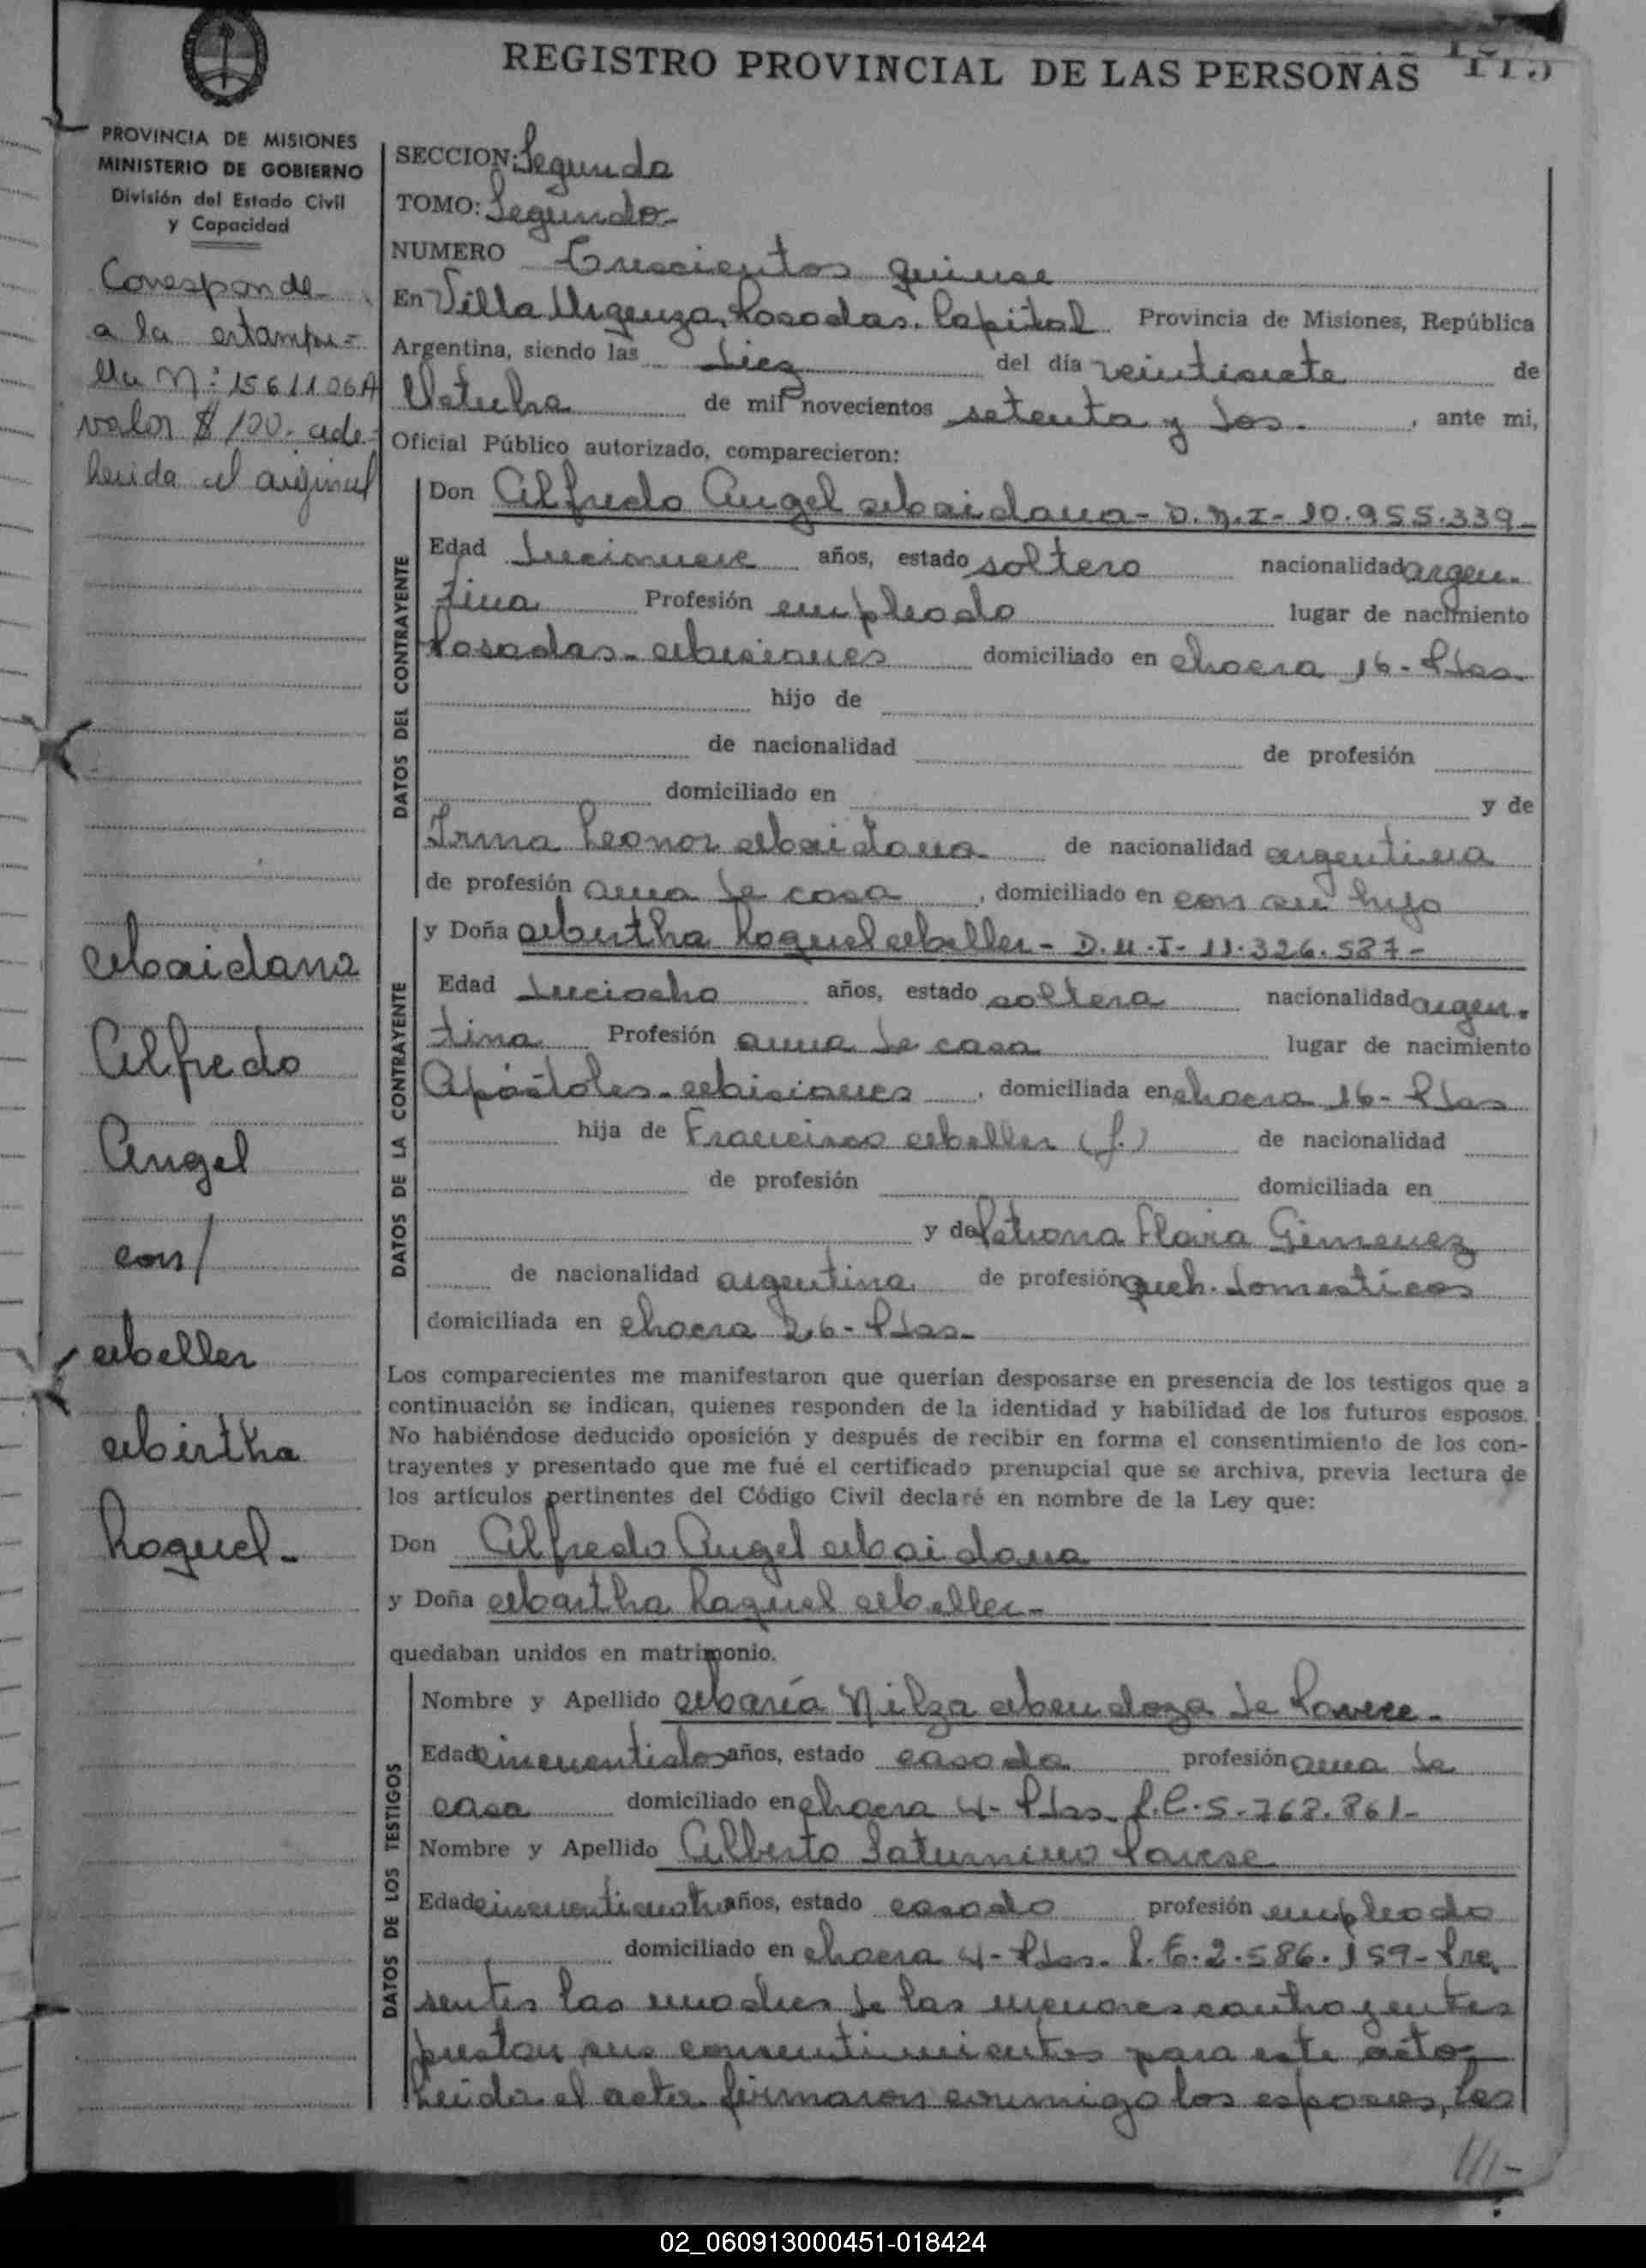 REGISTRO PROVINCIAL DE LAS PERSONAS
PROVINCIA DE MISIONES
MINISTERIO DE GOBIERNO
División del Estado Civil
y Capacidad
Coresponde
a la estampi=
lla N: 1561106A
valor $100- ade-
herida al original
Maidana
Alfredo
Angel
con/
Meller
Mirtha
Raquel-
SECCION: Segunda
TOMO: Segundo
NUMERO Trescientos quince
En Villa Urquiza, Posadas, Capital Provincia de Misiones, República
Argentina, siendo las diez del día veintisiete de
Octubre de mil novecientos setenta y dos. , ante mi,
Oficial Público autorizado, comparecieron:
DATOS DEL CONTRAYENTE
Don Alfredo Angel Maidana - D.N.I- 10.955.339-
Edad diecinueve años, estado soltero nacionalidad argen-
tina Profesión empleado lugar de nacimiento
Posadas- Misiones domiciliado en chacra 16- Pdas.
hijo de
de nacionalidad de profesión
domiciliado en y de
Irma Leonor Maidana de nacionalidad argentina
de profesión ama de casa , domiciliado en con su hijo
DATOS DE LA CONTRAYENTE
y Doña Mirtha Raquel Meller - D.N.I- 11.326.587-
Edad dieciocho años, estado soltera nacionalidad argen-
tina Profesión ama de casa lugar de nacimiento
Apóstoles- Misiones , domiciliada en chacra 16- Pdas
hija de Francisco Meller (f.) de nacionalidad
de profesión domiciliada en
y de Petrona Flavia Gimenez
de nacionalidad argentina de profesión queh. domésticos
domiciliada en chacra 26- Pdas-
Los comparecientes me manifestaron que querían desposarse en presencia de los testigos que a
continuación se indican, quienes responden de la identidad y habilidad de los futuros esposos.
No habiéndose deducido oposición y después de recibir en forma el consentimiento de los con-
trayentes y presentado que me fué el certificado prenupcial que se archiva, previa lectura de
los artículos pertinentes del Código Civil declaré en nombre de la Ley que:
Don Alfredo Angel Maidana
y Doña Mirtha Raquel Meller-
quedaban unidos en matrimonio.
DATOS DE LOS TESTIGOS
Nombre y Apellido María Nilza Mendoza de
Edad cincuentidos años, estado casada profesión ama de
casa domiciliado en chacra 4- Pdas. L.C.5.768.861-
Nombre y Apellido Alberto Saturnino Pavese
Edad cincuenticuatro años, estado casado profesión empleado
domiciliado en chacra 4- Pdas. L.E.2.586.159- Pre
sentes las madres de los menores contrayentes
prestan sus consentimientos para este acto,
Leida el acta firmaron conmigo los esposos, los
///-
02_060913000451-018424